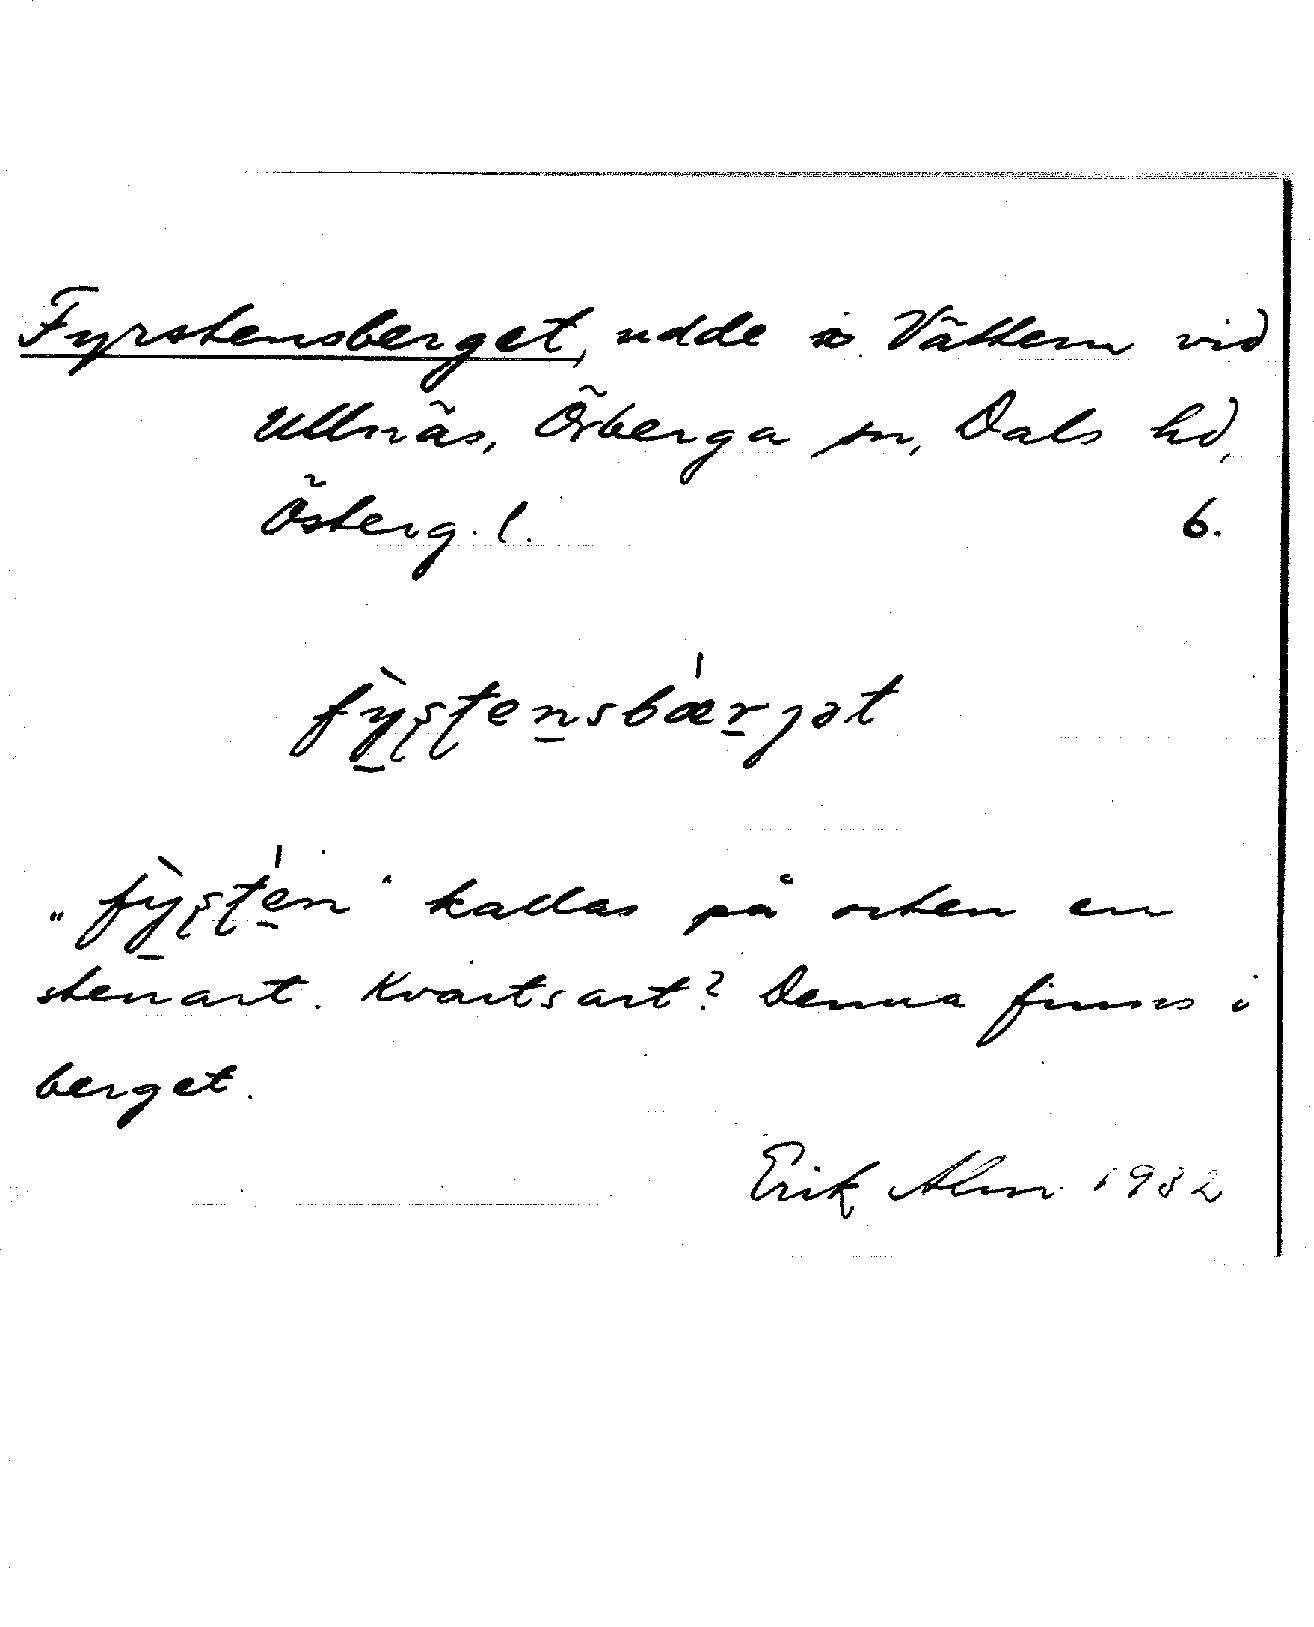 Fyrstensberget, udde i Vättern vid
Ullnäs, Örberga sn, Dals hd,
Österg. l. 6.
fỳʂʈensbǽrjət
"fỳʂʈén" kallas på orten en
stenart. Kvartsart? Denna finns i
berget.
Erik Alm 1932